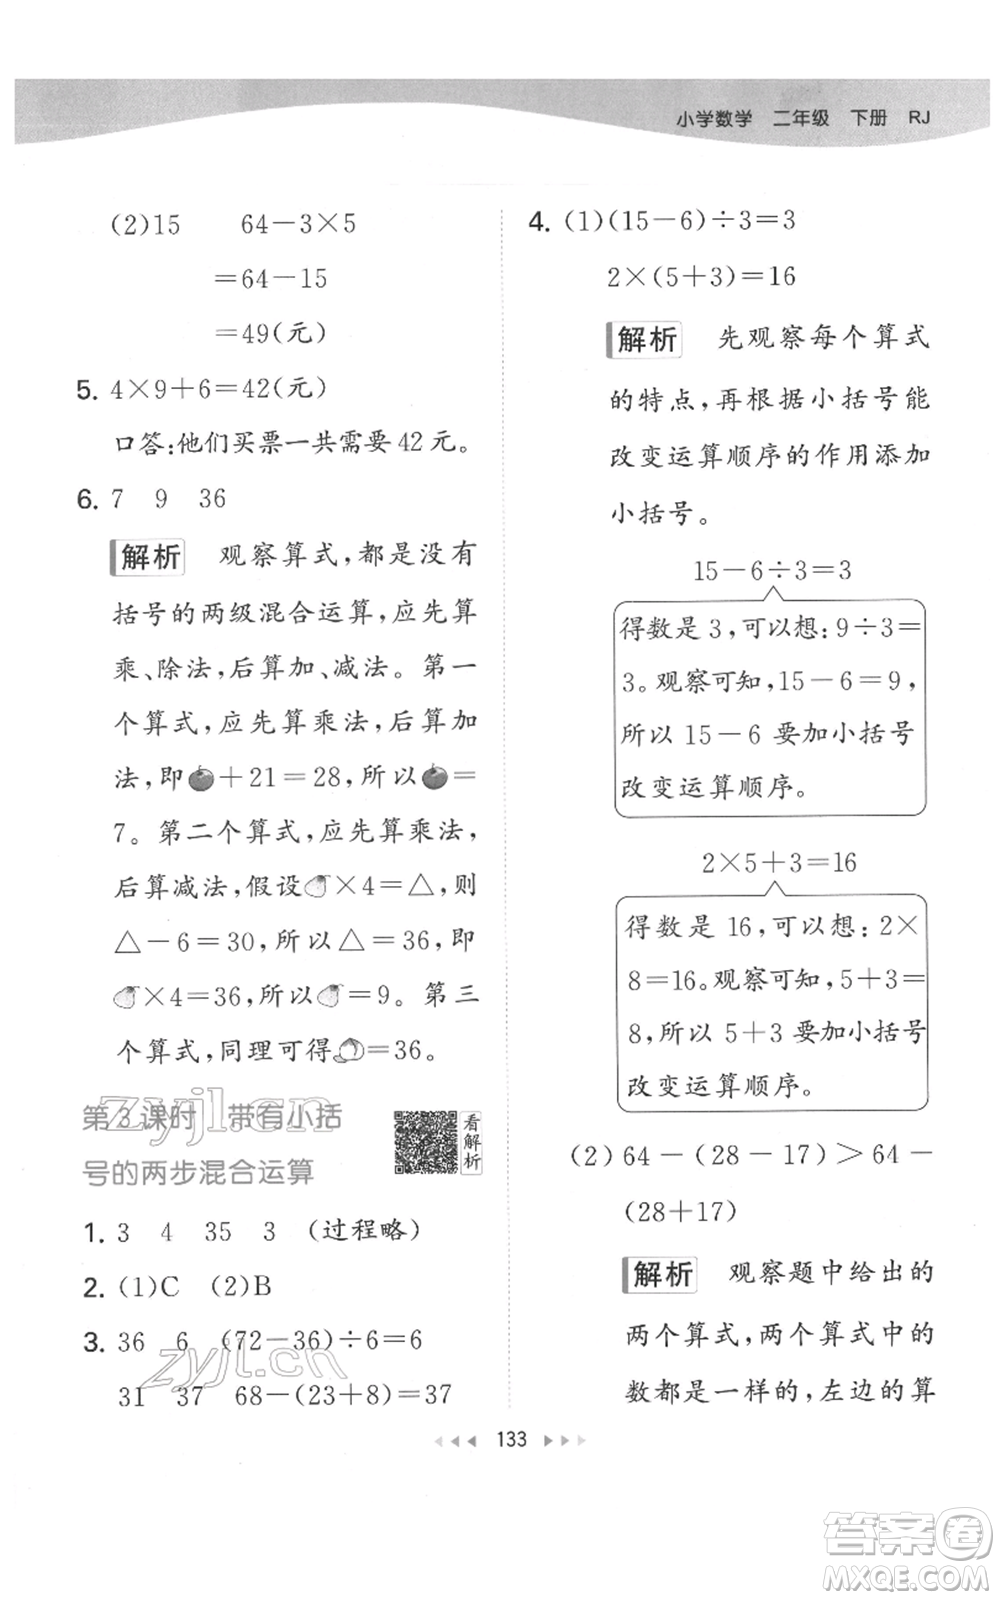 小学数学 二年级 下册 RJ
(2)15 64－3×5
＝64－15
＝49(元)
5. 4×9＋6＝42(元)
口答:他们买票一共需要 42 元。
6. 7 9 36
解析 观察算式,都是没有
括号的两级混合运算,应先算
乘、除法,后算加、减法。第一
个算式,应先算乘法,后算加
法,即＋21＝28,所以＝
7。第二个算式,应先算乘法,
后算减法,假设×4＝△,则
△－6＝30,所以△＝36,即
×4＝36,所以＝9。第三
个算式,同理可得＝36。
第 3 课时 带有小括
号的两步混合运算
看解析
1. 3 4 35 3 (过程略)
2. (1)C (2)B
3. 36 6 (72－36)÷6＝6
31 37 68－(23＋8)＝37
4. (1)(15－6)÷3＝3
2×(5＋3)＝16
解析 先观察每个算式
的特点,再根据小括号能
改变运算顺序的作用添加
小括号。
15－6÷3＝3
得数是 3,可以想:9÷3＝
3。观察可知,15－6＝9,
所以 15－6 要加小括号
改变运算顺序。
2×5＋3＝16
得数是 16,可以想:2×
8＝16。观察可知,5＋3＝
8,所以 5＋3 要加小括号
改变运算顺序。
(2)64－(28－17)＞64－
(28＋17)
解析 观察题中给出的
两个算式,两个算式中的
数都是一样的,左边的算
133
zyjl.cn
zyjl.cn
答案卷
MXQE.COM